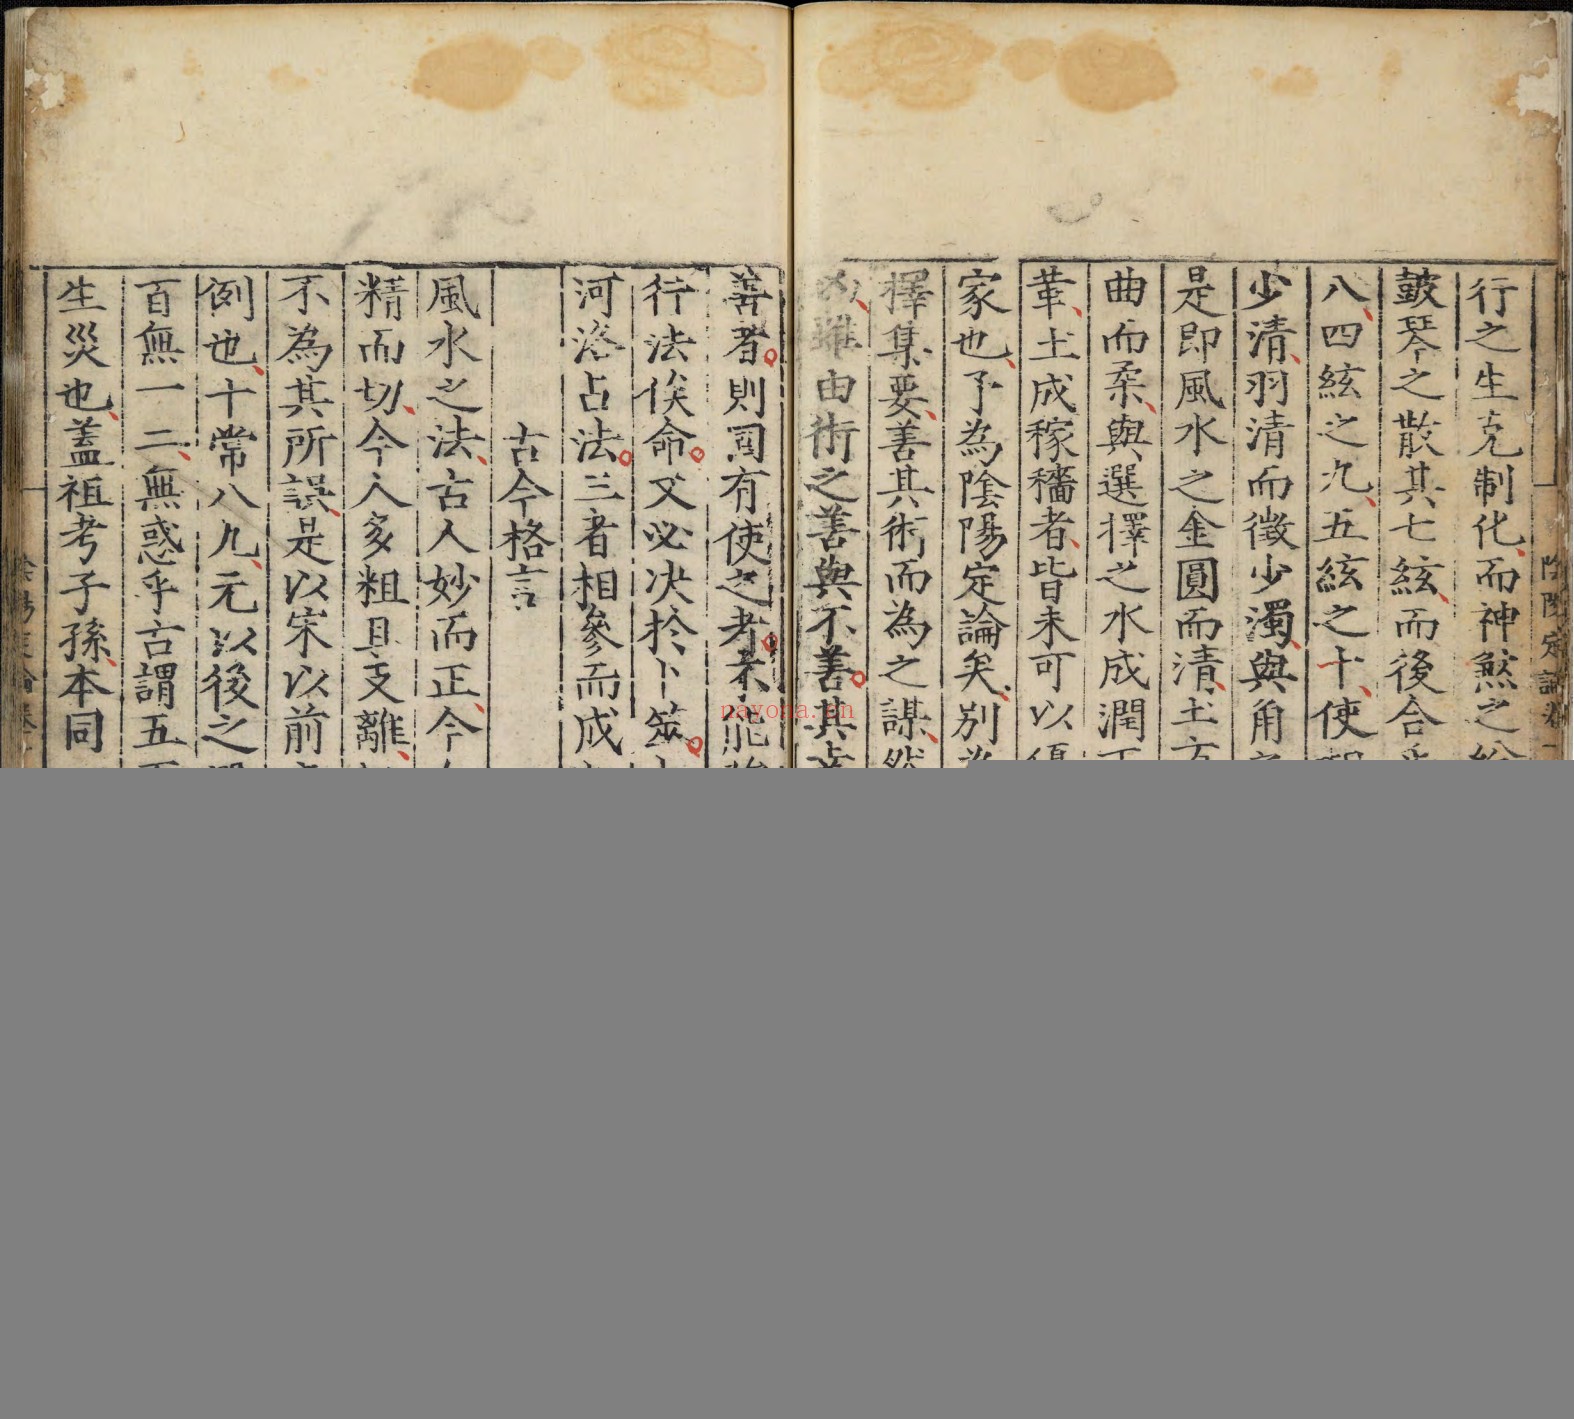 行之生克制化而神煞之紛
鼓琴之散其七絃而後合乎
八四絃之九五絃之十使
少清羽清而徵少濁與角
是即風水之金圓而清土方
曲而柔與選擇之水成潤下
葦土成稼穡者皆未可以
家也予為陰陽定論矣別為
擇集要善其術而為之謀然
雖由術之善與不善其
善者則固有使之者未能
行法俟命又必決於卜筮
河洛占法三者相參而成
古今格言
風水之法古人妙而正今
精而切今人多粗且支離
不為其所誤是以宋以前
例也十常八九元以後之
百無一二無惑乎古謂五
生災也蓋祖考子孫本同
nayona.cn